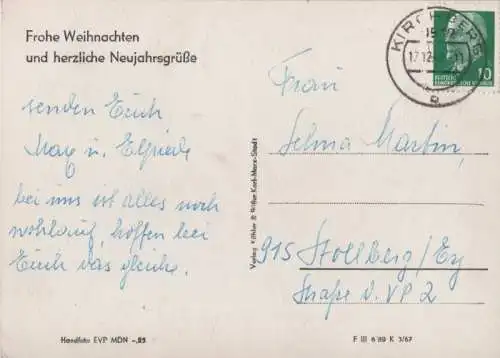 Frohe Weihnachten
und herzliche Neujahrsgrüße
senden Euch
Max u. Elfriede
bei uns ist alles noch
wohlauf, hoffen bei
Euch das gleiche.
Handfoto EVP MDN -,25
Verlag Köhler & Witter Karl-Marx-Stadt
KIRCHBERG
17.12.
DEUTSCHE
DEMOKRATISCHE REPUBLIK
10
Frau
Selma Martin,
915 Stollberg/Erz
Straße d. VP 2
F III 6 89 K 3/67